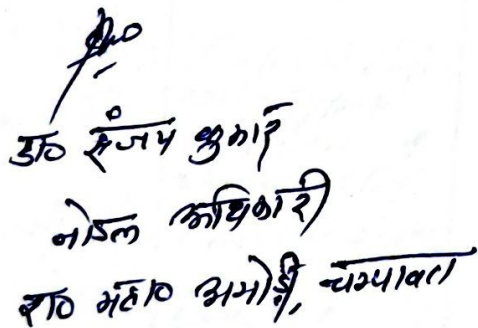 डा० संजय कुमार
नोडल अधिकारी
रा० महा० अमोड़ी, चम्पावत